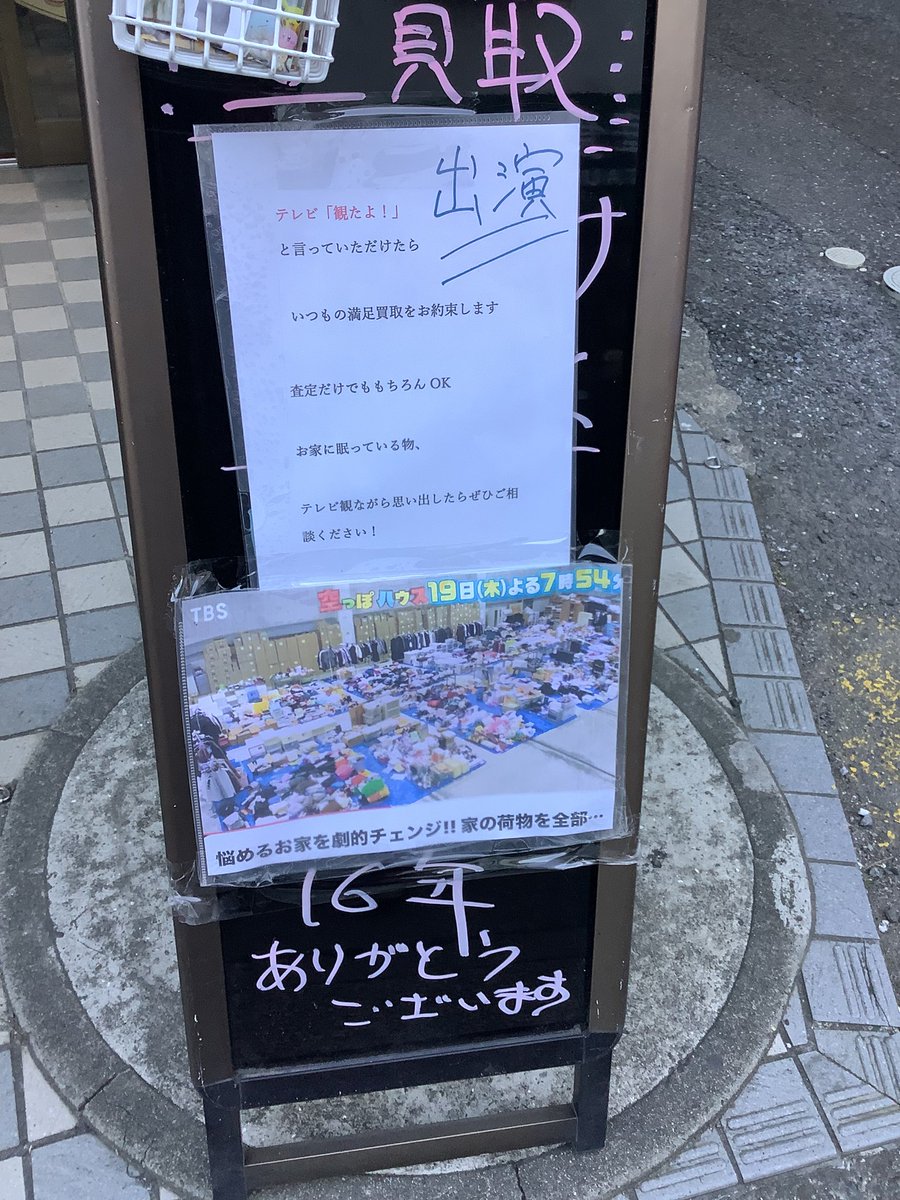 買取
出演
テレビ「観たよ！」
と言っていただけたら
いつもの満足買取をお約束します
査定だけでももちろん OK
お家に眠っている物、
テレビ観ながら思い出したらぜひご相
談ください！
TBS
空っぽハウス19日(木)よる7時54分
悩めるお家を劇的チェンジ!! 家の荷物を全部…
16年
ありがとう
ございます